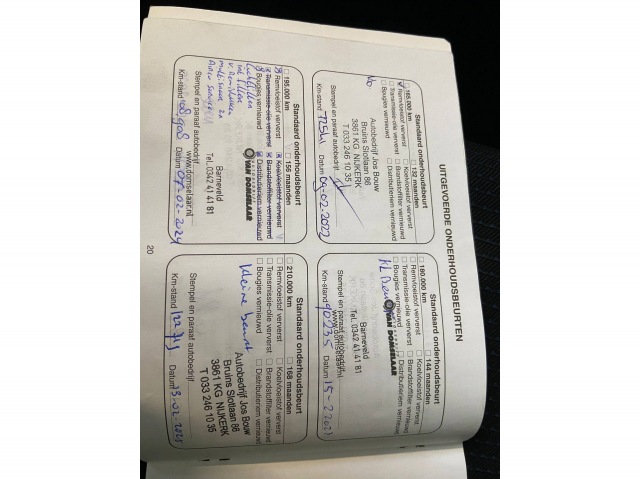 UITGEVOERDE ONDERHOUDSBEURTEN
Standaard onderhoudsbeurt
□ 165.000 km □ 132 maanden
Remvloeistof ververst □ Koelvloeistof ververst
□ Transmissie-olie ververst □ Brandstoffilter vernieuwd
□ Bougies vernieuwd □ Distributieriem vernieuwd
Autobedrijf Jos Bouw
Bruins Slotlaan 86
3861 KG NIJKERK
T 033 246 10 35
Stempel en paraaf autobedrijf
Km-stand Datum 09-02-2022
Standaard onderhoudsbeurt
□ 180.000 km □ 144 maanden
□ Remvloeistof ververst □ Koelvloeistof ververst
□ Transmissie-olie ververst □ Brandstoffilter vernieuwd
□ Bougies vernieuwd □ Distributieriem vernieuwd
VAN DOMSELAAR
Barneveld
Tel. 0342 41 41 81
www.domselaar.nl
Stempel en paraaf autobedrijf
Km-stand 90235 Datum 15-2-2023
Standaard onderhoudsbeurt
□ 195.000 km □ 156 maanden
Remvloeistof ververst Koelvloeistof ververst
Transmissie-olie ververst Brandstoffilter vernieuwd
Bougies vernieuwd Distributieriem vernieuwd
VAN DOMSELAAR
Barneveld
Tel. 0342 41 41 81
www.domselaar.nl
Stempel en paraaf autobedrijf
Km-stand Datum 07-02-2024
Standaard onderhoudsbeurt
□ 210.000 km □ 168 maanden
□ Remvloeistof ververst □ Koelvloeistof ververst
□ Transmissie-olie ververst □ Brandstoffilter vernieuwd
□ Bougies vernieuwd □ Distributieriem vernieuwd
kleine beurt
Autobedrijf Jos Bouw
Bruins Slotlaan 86
3861 KG NIJKERK
T 033 246 10 35
Stempel en paraaf autobedrijf
Km-stand Datum 13-02-2025
20